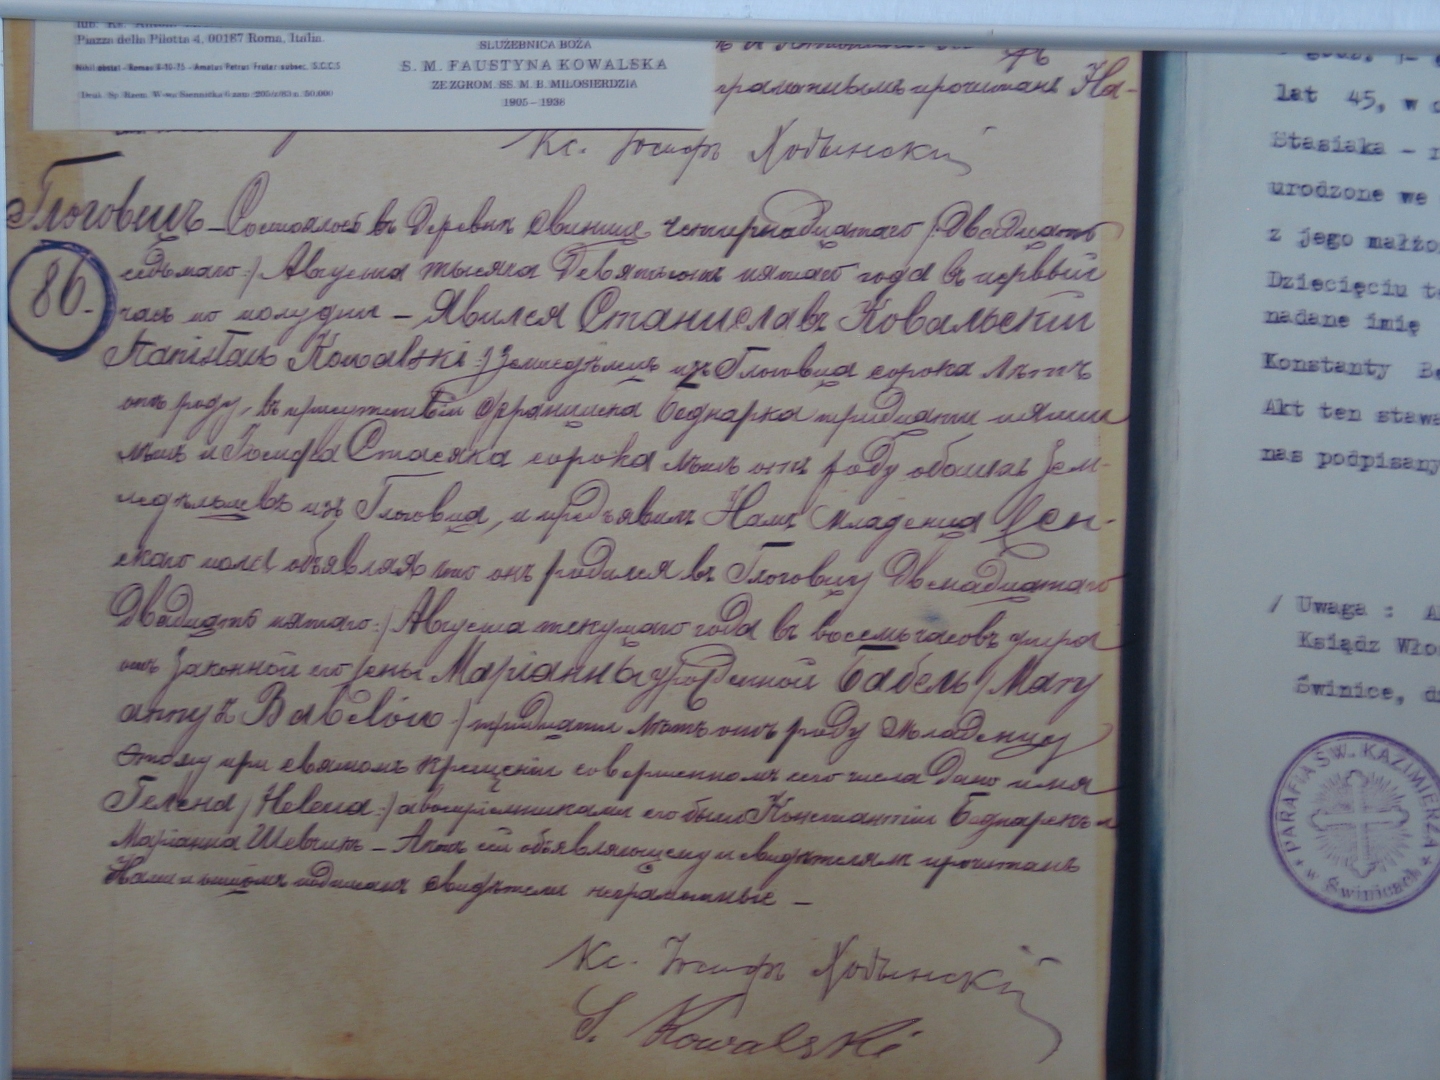 Piazza della Pilotta 4, 00187 Roma, Italia.
SŁUŻEBNICA BOŻA
S. M. FAUSTYNA KOWALSKA
ZE ZGROM. SS. M. B. MIŁOSIERDZIA
1905 – 1938
грамотнымъ прочитанъ На-
Кс. Іосифъ Ходынскій
Глоговецъ – Состоялось въ деревнѣ Свинице четырнадцатаго /двадцать
86.
седьмаго:/ Августа тысяча девятьсотъ пятаго года въ первый
часъ по полудни – Явился Станиславъ Ковальскій
Stanisław Kowalski:/ земледѣлецъ изъ Глоговца сорока лѣтъ
отъ роду, въ присутствіи Францишка Беднарка тридцати пяти
лѣтъ и Іосифа Стасяка сорока лѣтъ отъ роду обоихъ зем-
ледѣльцевъ изъ Глоговца, и предъявилъ Намъ младенца жен-
скаго пола объявляя что онъ родился въ Глоговцу двѣнадцатаго
/двадцать пятаго:/ Августа текущаго года въ восемь часовъ утра
отъ законной его жены Маріанны урожденной Бабель /Mary
anny z Babelów:/ тридцати лѣтъ отъ роду Младенцу
этому при святомъ крещеніи совершенномъ сего числа дано имя
Гелена /Helena:/ а воспріемниками его были Константій Беднарекъ и
Маріанна Шевчикъ – Актъ сей объявляющему и свидѣтелямъ прочитанъ
Нами и отцомъ подписанъ свидѣтели неграмотные –
Кс. Іосифъ Ходынскій
S. Kowalski
lat 45, w
Stasiaka –
urodzone we
z jego
Dziecięciu
nadane imię
Konstanty
Akt ten
nas podpisany
/ Uwaga :
Ksiądz
Świnice,
PARAFIA ŚW. KAZIMIERZA
w Świnicach